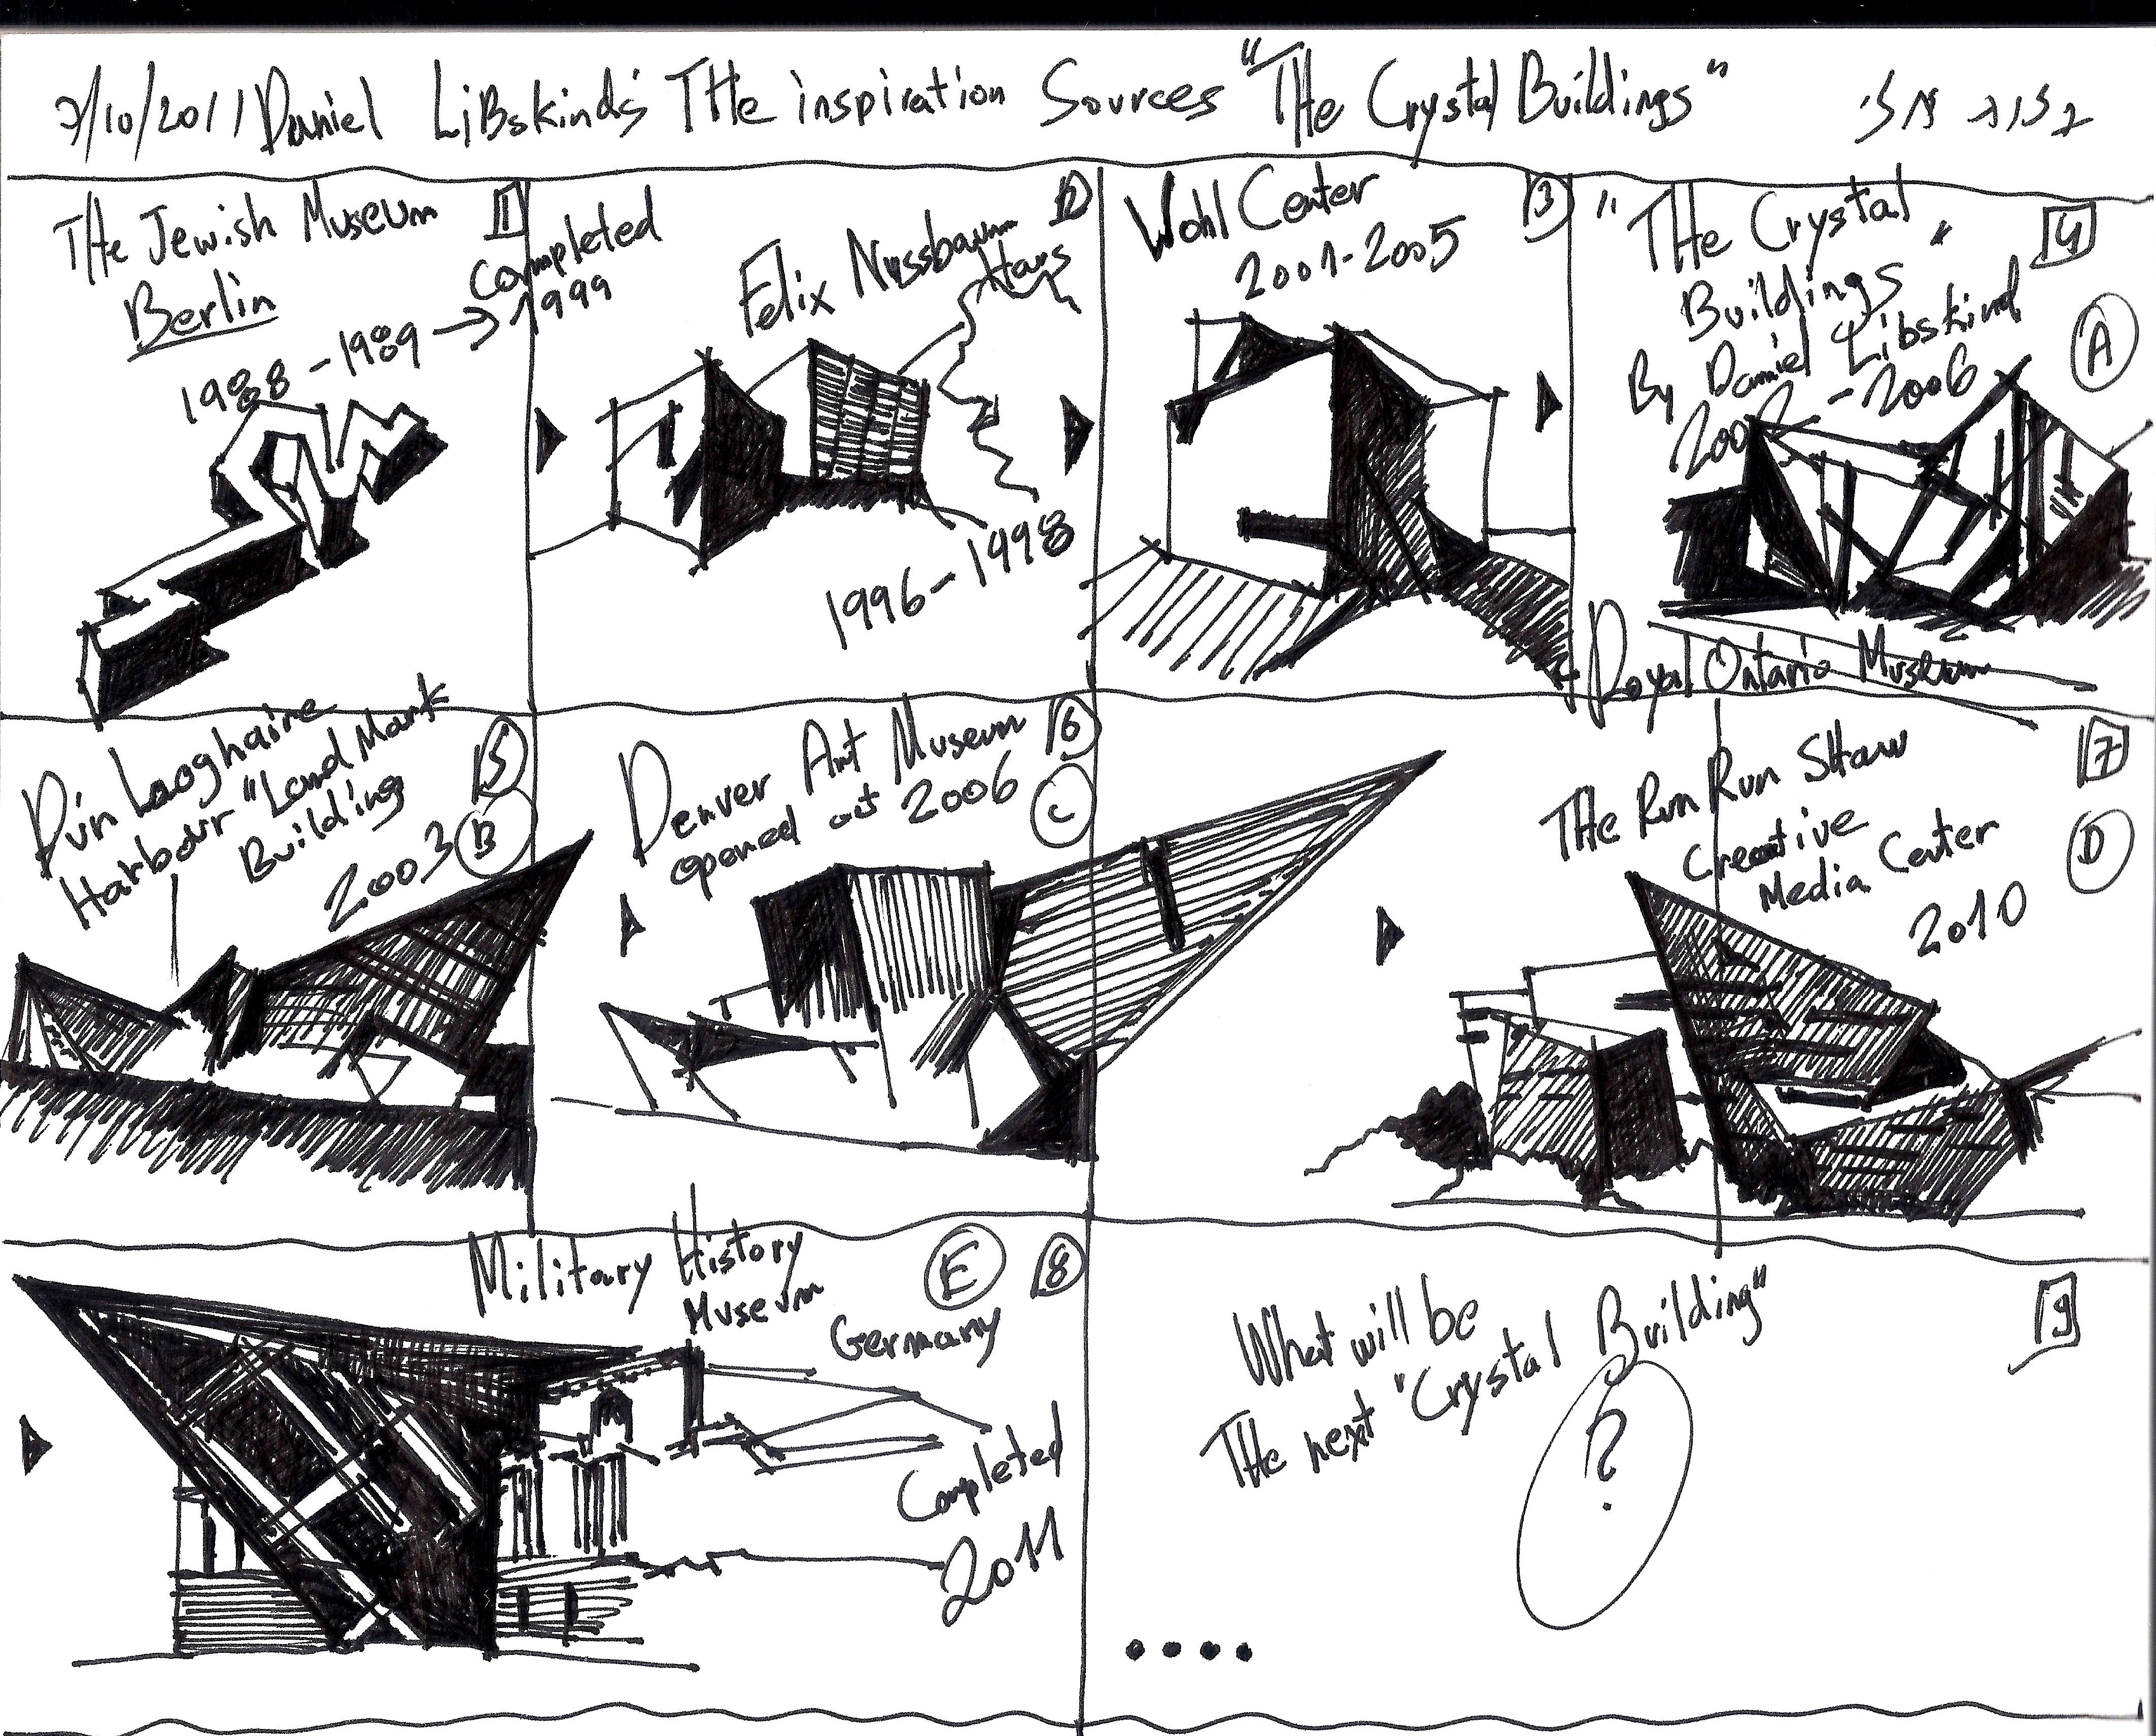 7/10/2011 Daniel LiBskind's THe inspiration Sources "THe Crystal Buildings"
THe Jewish Museum
Berlin
1988-1989 →
1
Completed
1999
Felix Nussbaum
Haus
2
1996-1998
Wohl Center
2001-2005
3
"THe Crystal"
Buildings
By Daniel Libskind
2002-2006
4
A
Royal Ontario Museum
Dún Laoghaire
Harbour "Land Mark
Building
2003
5
B
Denver Art Museum
opened at 2006
6
C
THe Run Run Shaw
Creative
Media Center
2010
7
D
Military History
Museum
Germany
E
8
Completed
2011
What will be
THe next "Crystal Building"
?
9
....